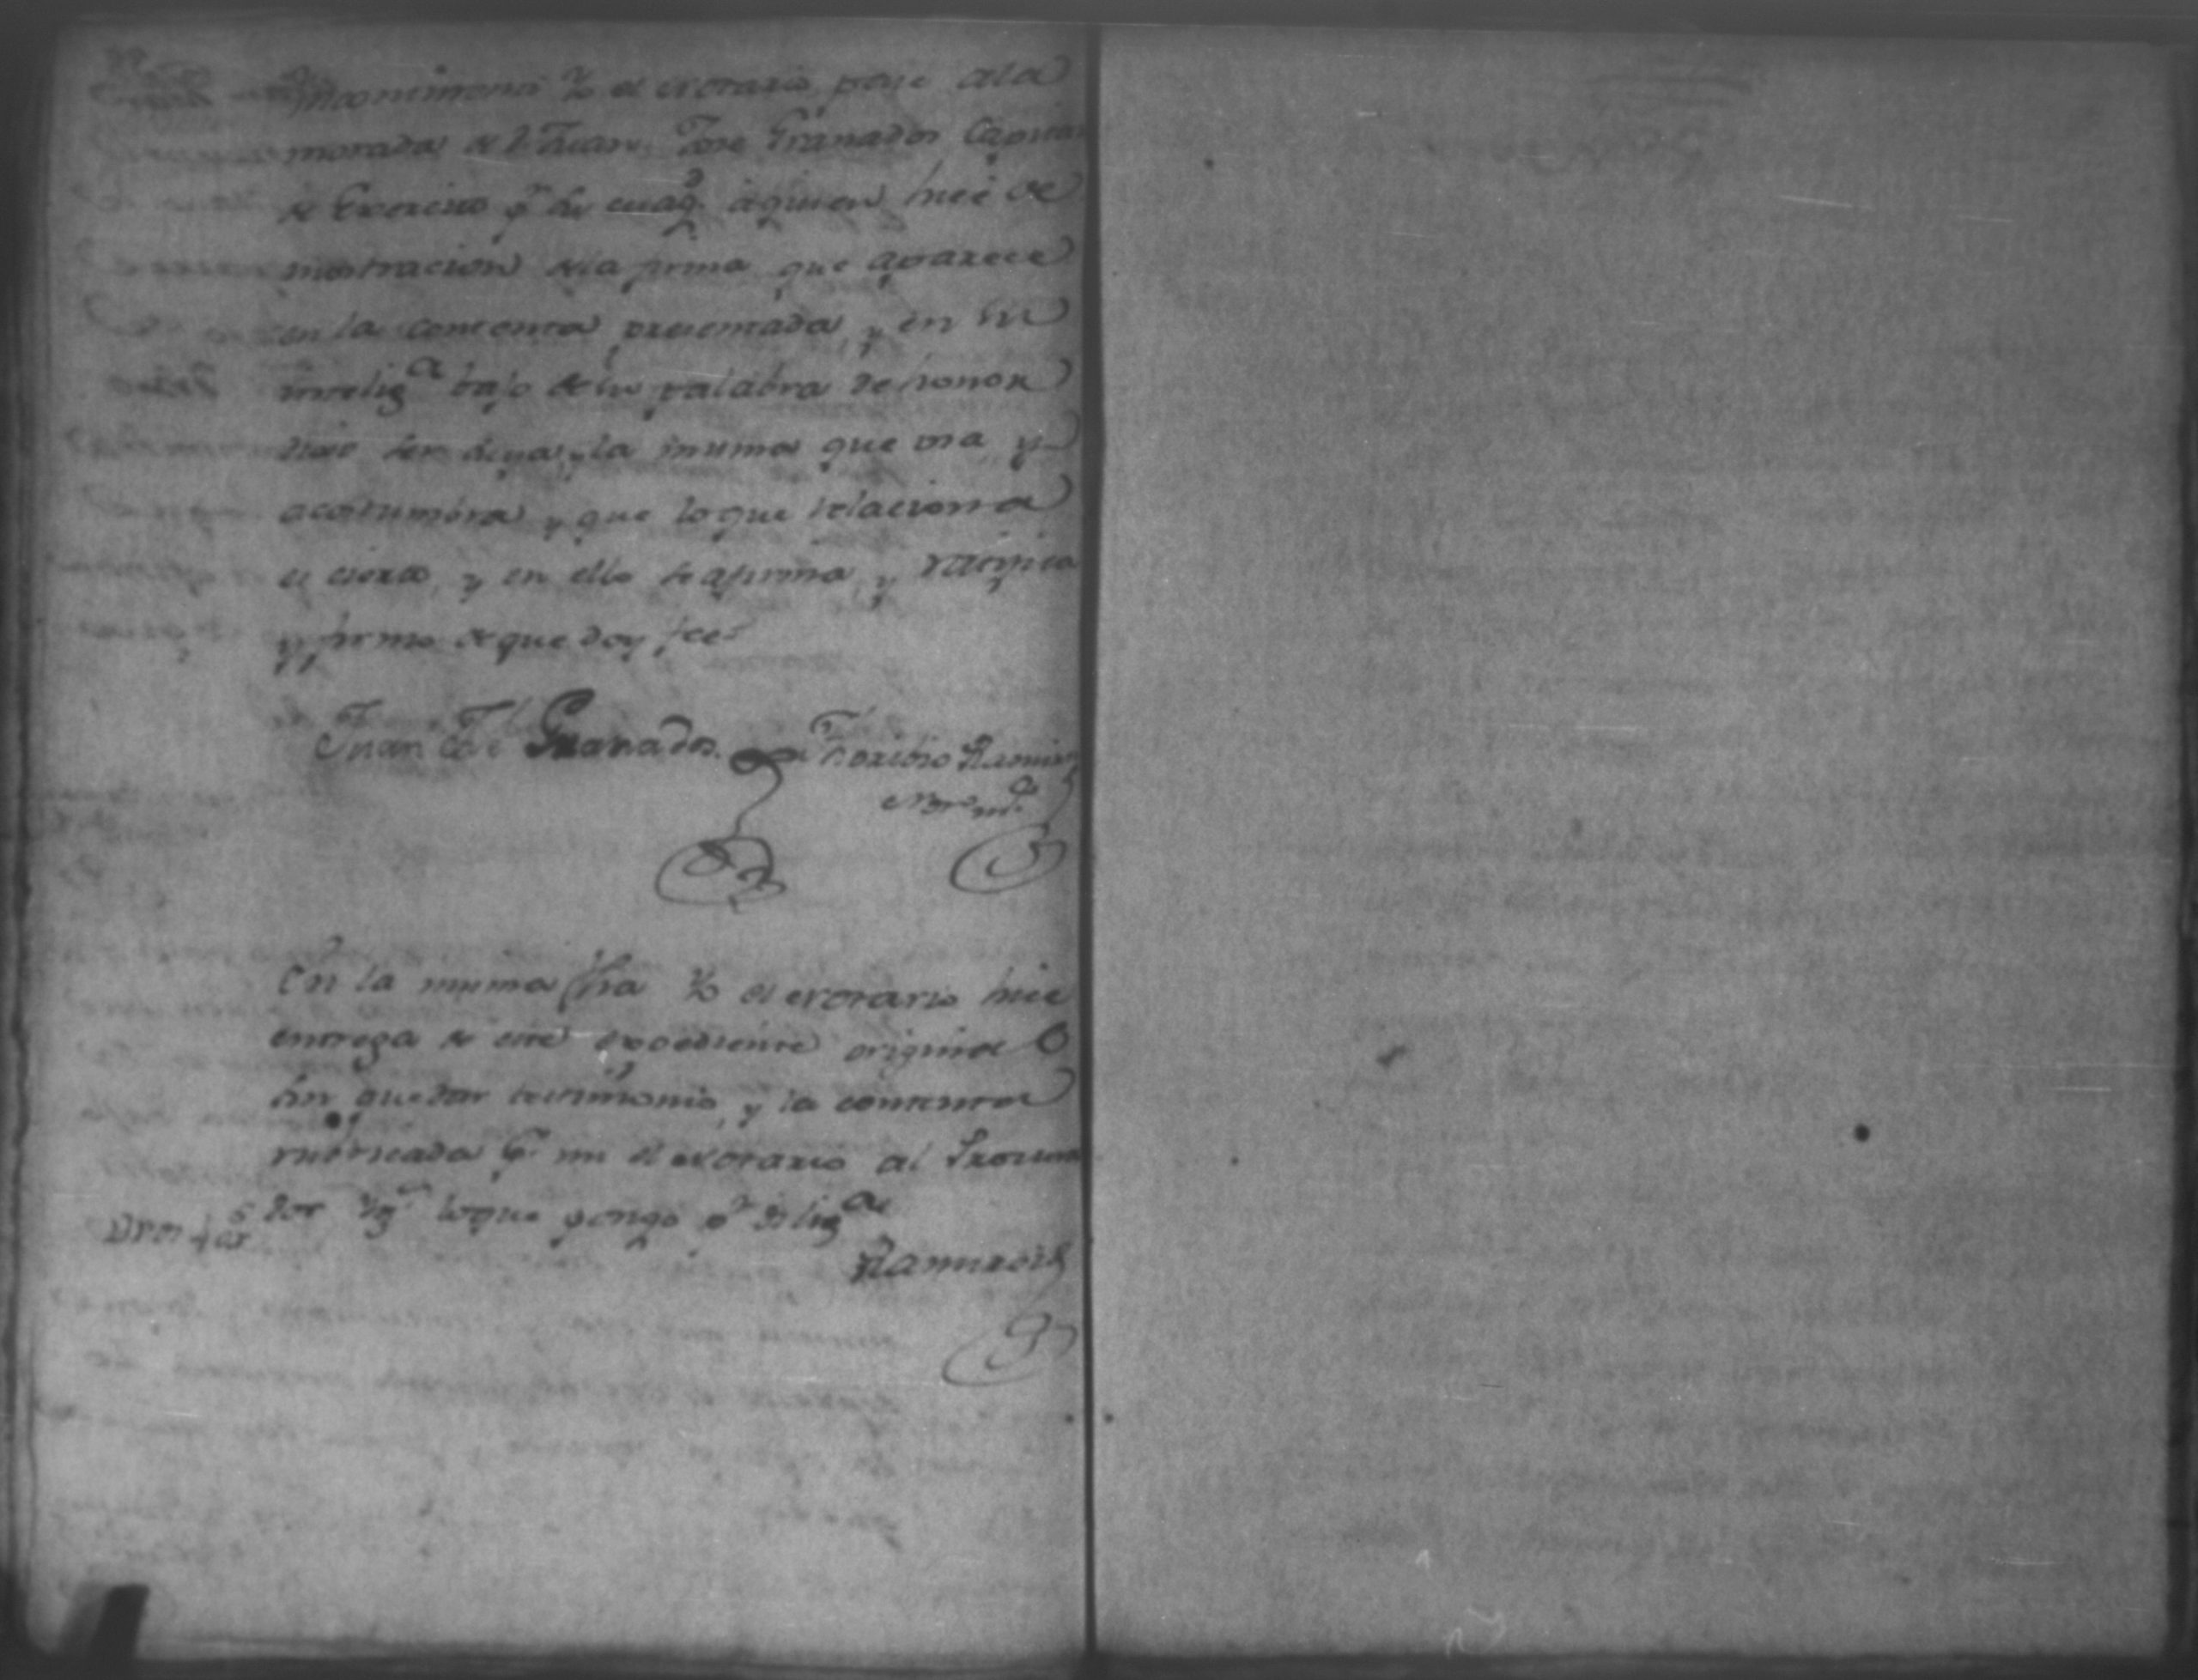 Incontinenti Yo el exorario pase ala
morada de Dn Juan Jose Granados Capitan
de Exercito pr su mag.d à quien hice de
mostracion dela firma que aparece
en la contenta presentada, y en su
intelig.a bajo de su palabra de honor
dixo ser suya y la misma que usa y
acostumbra, y que lo que relaciona
es cierto, y en ello se afirma, y ratifica
y firmo de que doy fee
Juan Jo.e Granados Thoribio Ramirez
En la misma fha Yo el exorario hice
entrega de este expediente original
sin quedar testimonio, y la contenta
rubricada pr mi el exorario al Procura
dor lo que pongo pr dilig.a
Dros
Ramirez